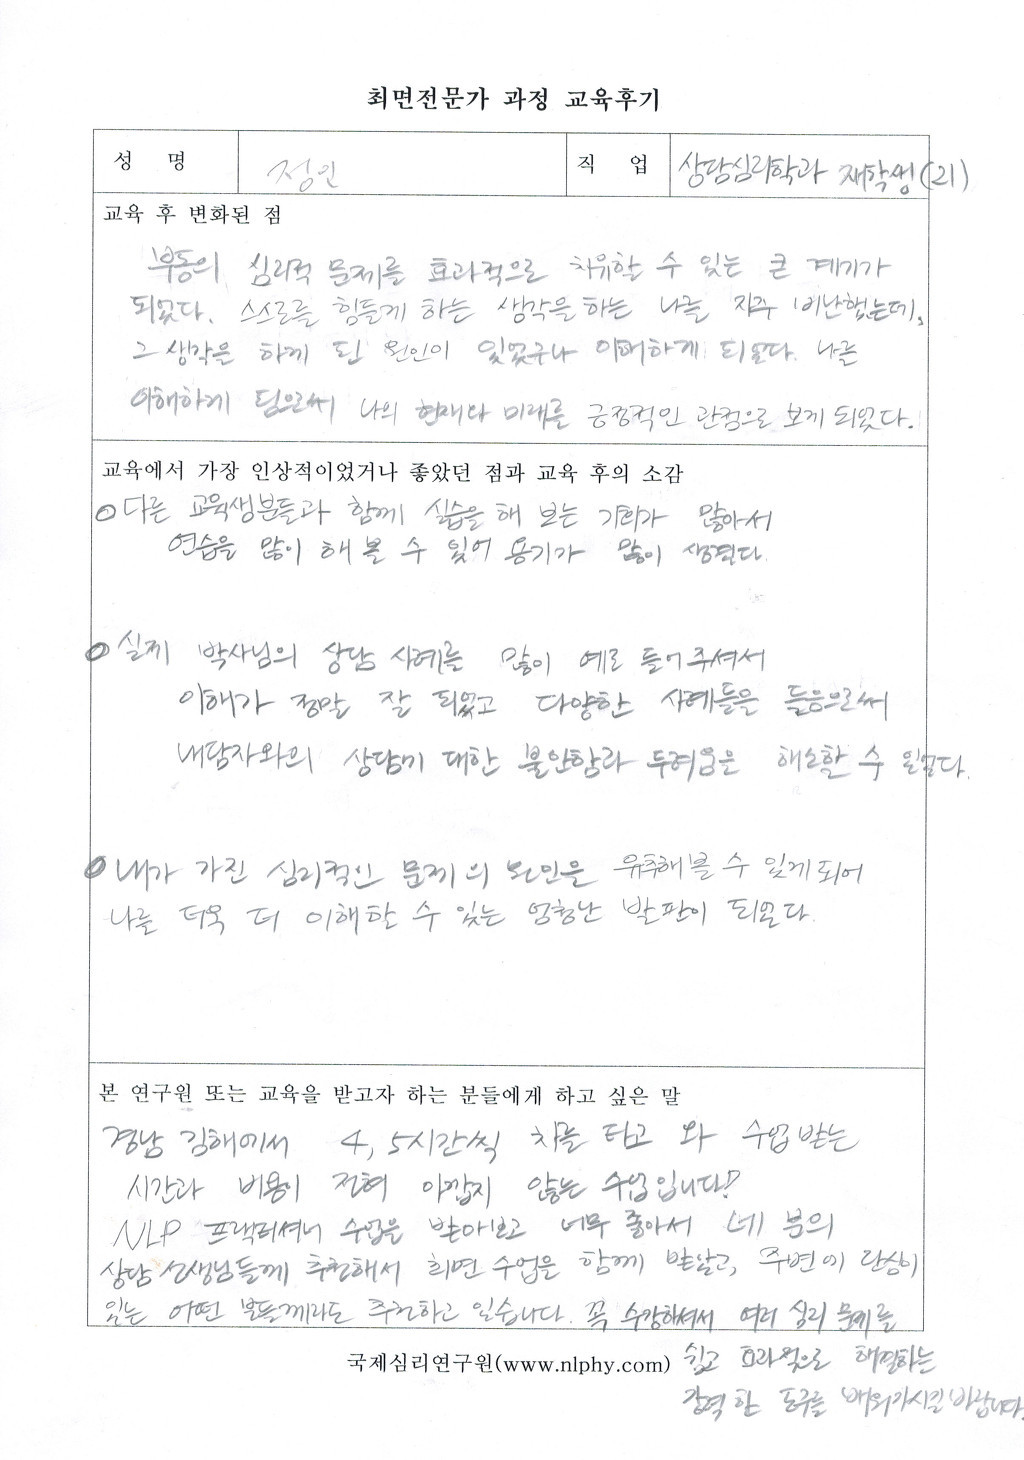 최면전문가 과정 교육후기
성 명 정인 직 업 상담심리학과 재학생(21)
교육 후 변화된 점
부동의 심리적 문제를 효과적으로 치유할 수 있는 큰 계기가
되었다. 스스로를 힘들게 하는 생각을 하는 나를 자주 비난했는데,
그 생각을 하게 된 원인이 있었구나 이해하게 되었다. 나를
이해하게 됨으로써 나의 현재와 미래를 긍정적인 관점으로 보게 되었다.
교육에서 가장 인상적이었거나 좋았던 점과 교육 후의 소감
○ 다른 교육생분들과 함께 실습을 해 보는 기회가 많아서
연습을 많이 해 볼 수 있어 용기가 많이 생겼다.
○ 실제 박사님의 상담 사례를 많이 예로 들어 주셔서
이해가 정말 잘 되었고 다양한 사례들을 들음으로써
내담자와의 상담에 대한 불안함과 두려움을 해소할 수 있었다.
○ 내가 가진 심리적인 문제의 원인을 유추해볼 수 있게되어
나를 더욱 더 이해할 수 있는 엄청난 발판이 되었다.
본 연구원 또는 교육을 받고자 하는 분들에게 하고 싶은 말
경남 김해에서 4, 5시간씩 차를 타고 와 수업받는
시간과 비용이 전혀 아깝지 않는 수업입니다!
NLP 프랙티셔너 수업을 받아보고 너무 좋아서 네 분의
상담 선생님들께 추천해서 최면 수업을 함께 받았고, 주변에 관심이
있는 어떤 분들께라도 추천하고 있습니다. 꼭 수강하셔서 여러 심리 문제를
쉽고 효과적으로 해결하는
강력한 도구를 배워가시길 바랍니다.
국제심리연구원(www.nlphy.com)